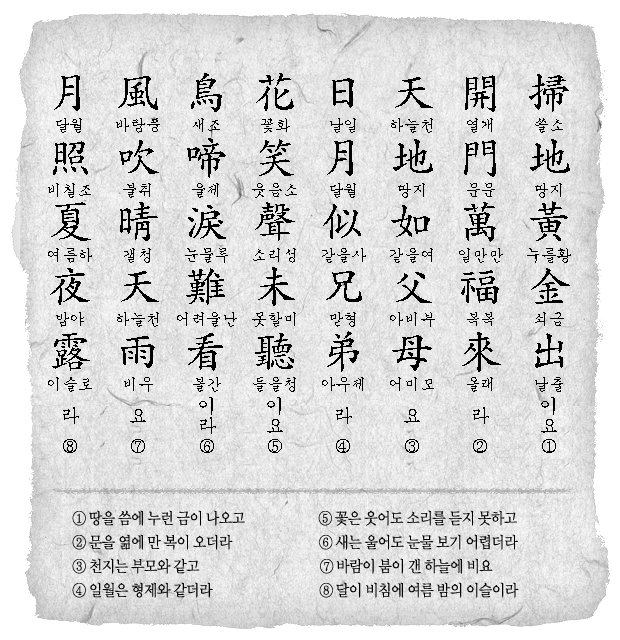 掃 쓸소 地 땅지 黃 누를황 金 쇠금 出 날출 이요 ①
開 열개 門 문문 萬 일만만 福 복복 來 올래 라 ②
天 하늘천 地 땅지 如 같을여 父 아비부 母 어미모 요 ③
日 날일 月 달월 似 같을사 兄 맏형 弟 아우제 라 ④
花 꽃화 笑 웃음소 聲 소리성 未 못할미 聽 들을청 이요 ⑤
鳥 새조 啼 울제 淚 눈물루 難 어려울난 看 볼간 이라 ⑥
風 바람풍 吹 불취 晴 갤청 天 하늘천 雨 비우 요 ⑦
月 달월 照 비칠조 夏 여름하 夜 밤야 露 이슬로 라 ⑧
① 땅을 씀에 누런 금이 나오고
② 문을 엶에 만 복이 오더라
③ 천지는 부모와 같고
④ 일월은 형제와 같더라
⑤ 꽃은 웃어도 소리를 듣지 못하고
⑥ 새는 울어도 눈물 보기 어렵더라
⑦ 바람이 붊이 갠 하늘에 비요
⑧ 달이 비침에 여름 밤의 이슬이라